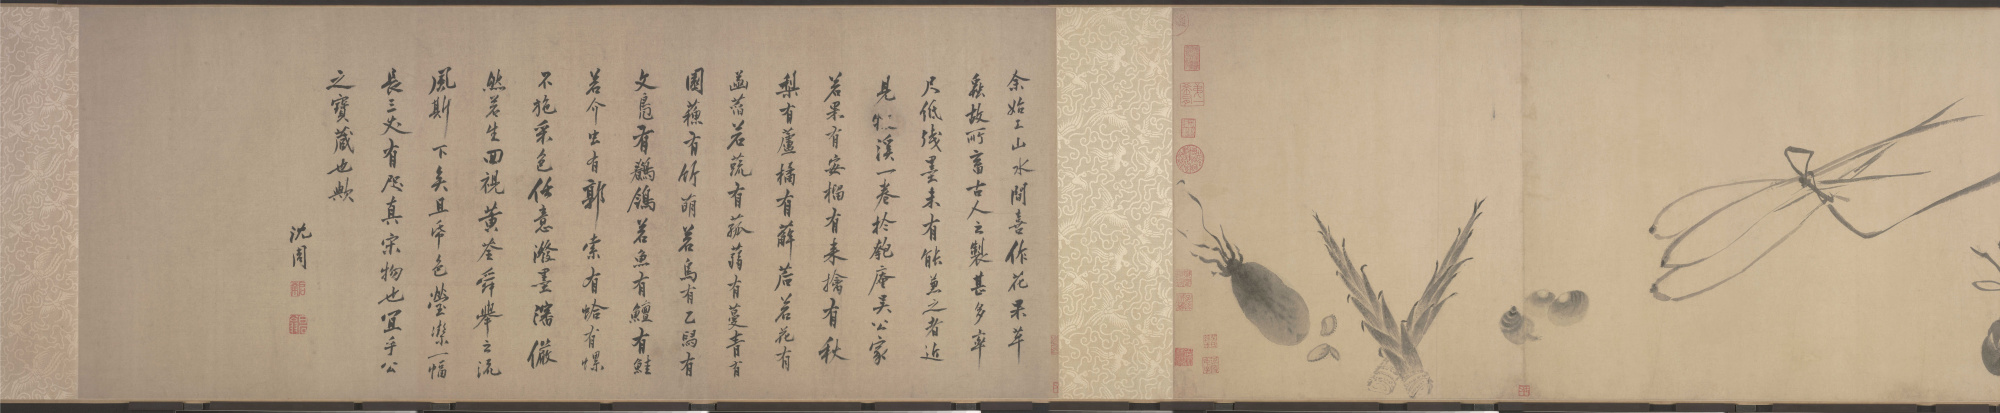 余始工山水間喜作花果草
蟲故所畜古人之製甚多率
尺低殘墨未有能兼之者近
見牧溪一卷於匏庵吳公家
若果有安榴有来擒有秋
梨有蘆橘有薢茩若花有
菡萏若蔬有菰蒲有蔓青有
園蘓有竹萌若鳥有乙舄有
文鳧有鶺鴒若魚有鱣有鮭
若介虫有郭索有蛤有螺
不施采色任意潑墨瀋儼
然若生回視黃筌舜舉之流
風斯下矣且帋色瑩潔一幅
長三丈有咫真宋物也宜乎公
之寶藏也歟
沈周